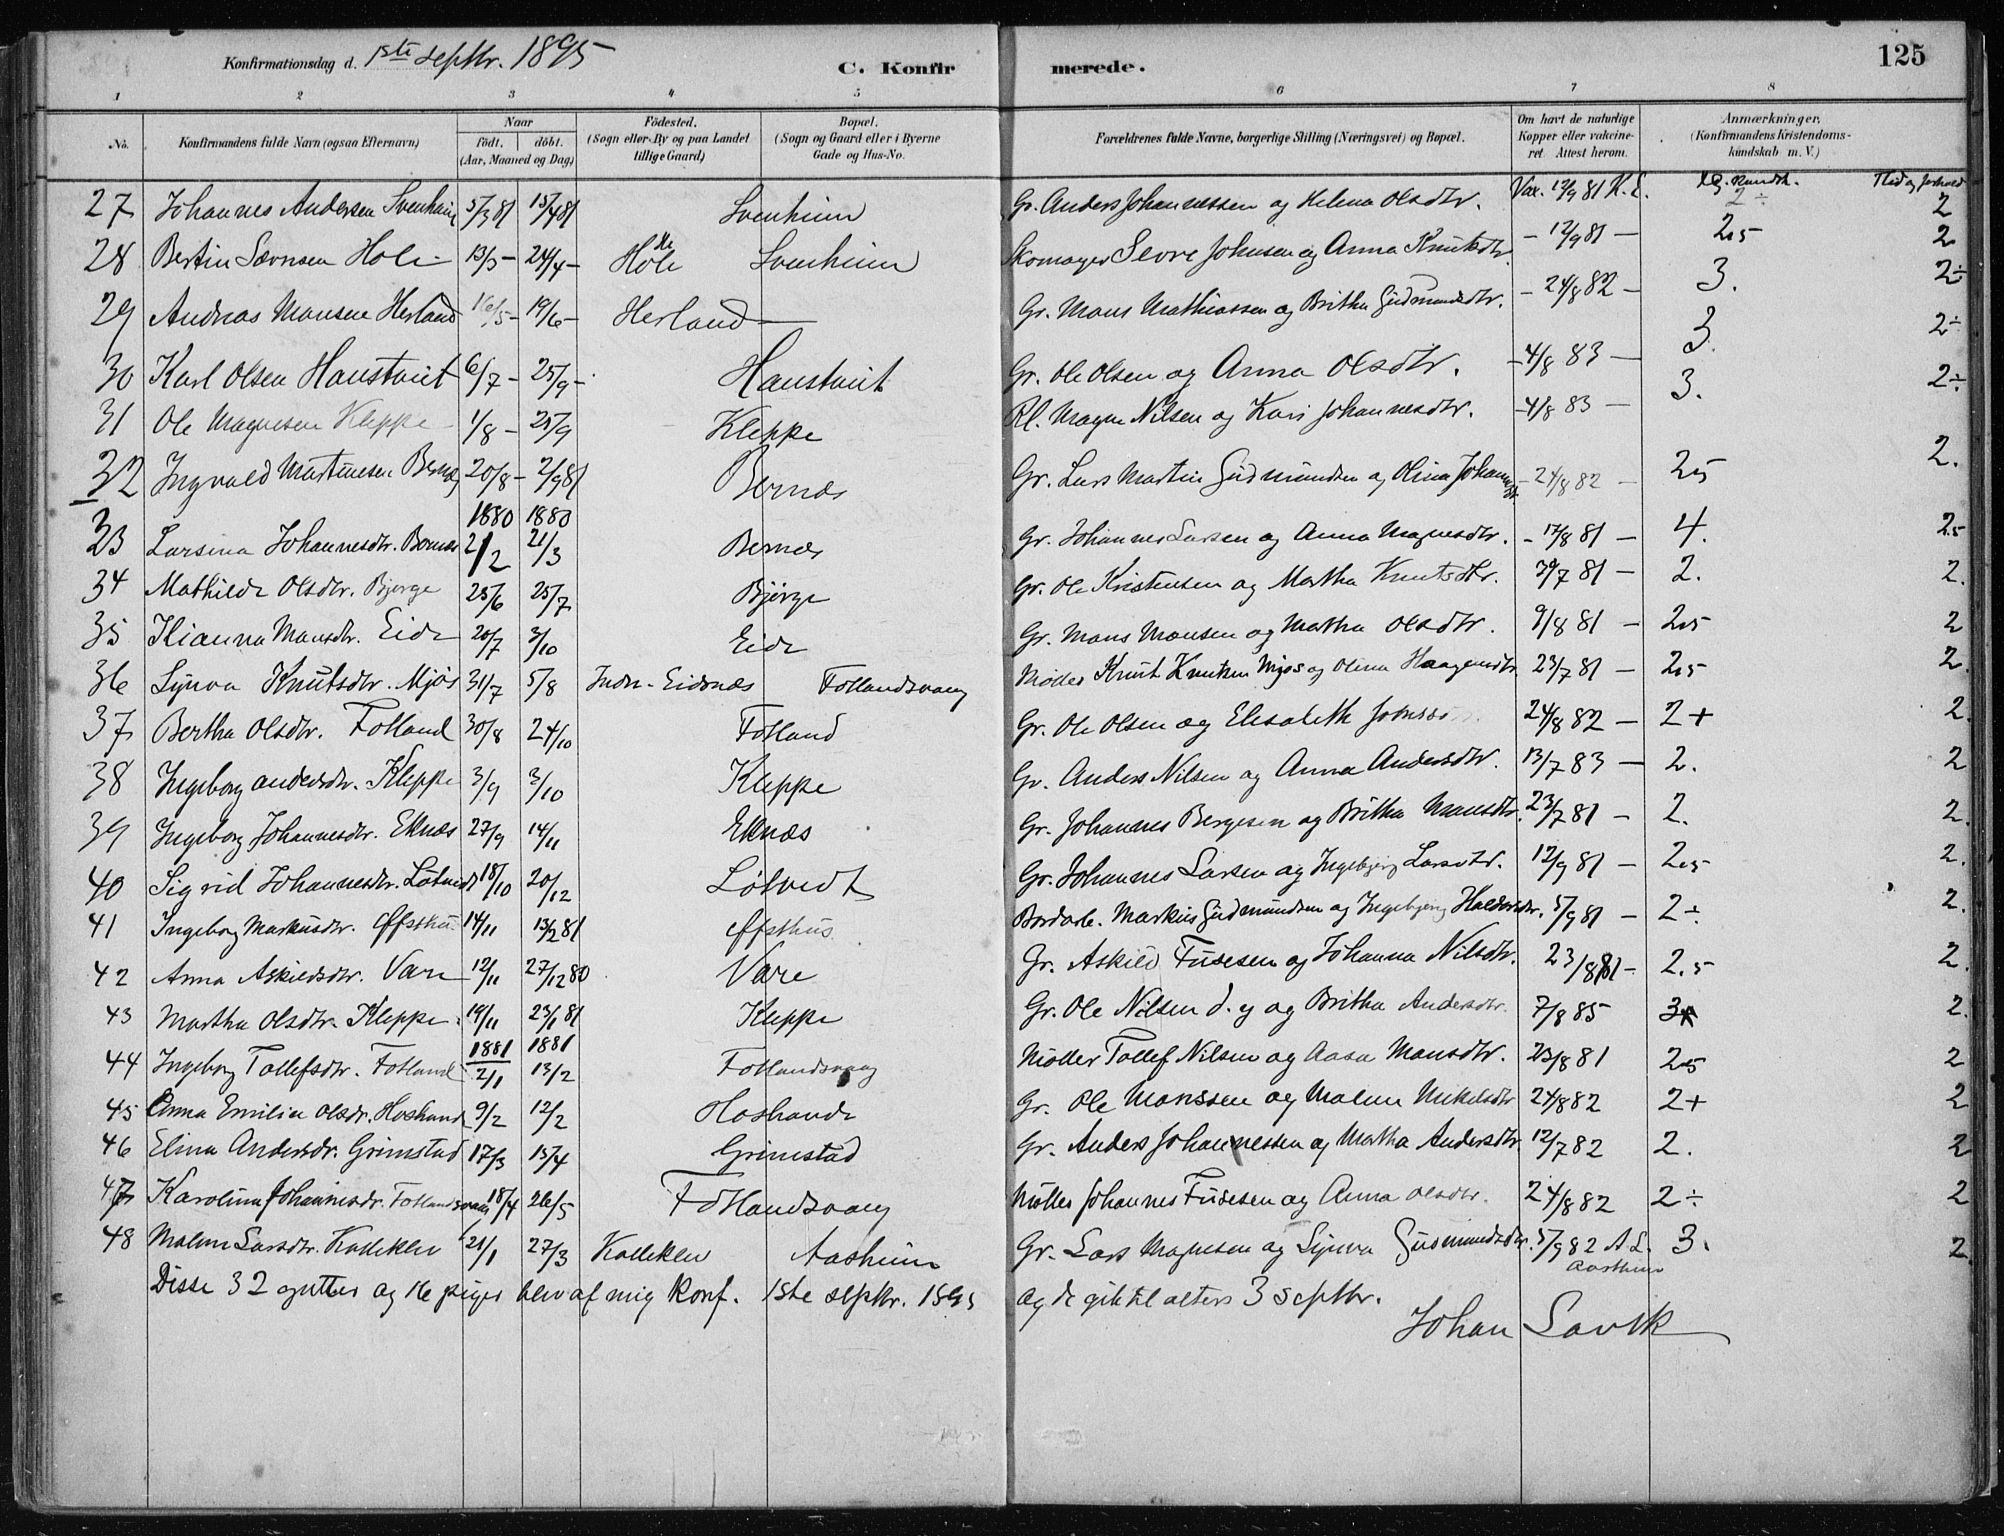 Konfirmationsdag d. 1ste septbr. 1895 C. Konfirmerede. 125
1 2 3 4 5 6 7 8
No. Konfirmandens fulde Navn (ogsaa Efternavn) Naar født. døbt. (Aar, Maaned og Dag) Fødested. (Sogn eller By og paa Landet tillige Gaard) Bopæl. (Sogn og Gaard eller i Byerne Gade og Hus-No. Forældrenes fulde Navne, borgerlige Stilling (Næringsvei) og Bopæl. Om havt de naturlige Kopper eller vakcineret. Attest herom. Anmærkninger. (Konfirmandens Kristendomskundskab m. V.)
27 Johannes Andersen Svenheim 5/3 81 15/4 81 Svenheim Gr. Anders Johannessen og Helena Olsdtr. Vax. 12/9 81 K. L. 2÷ 2
28 Bertin Sævrisen Hole 13/3 – 24/4 – Hole Svenheim Skomager Sevre Johnsen og Anna Knutsdtr. – 12/9 81 – 2.5 2
29 Andreas Monsen Herland 16/5 – 19/6 – Herland Gr. Mons Mathiassen og Britha Gudmundsdtr. – 24/8 82 – 3. 2÷
30 Karl Olsen Haustveit 6/7 – 25/9 – Haustveit Gr. Ole Olsen og Anna Olsdtr. – 4/8 83 – 3. 2÷
31 Ole Magnesen Kleppe 1/8 – 25/9 Kleppe Rl. Magne Nilsen og Kari Johannesdtr. – 4/8 83 – 3. 2÷
32 Ingvald Martinesen Bernæs 20/8 – 2/9 81 Bernæs Gr. Lars Martin Gudmundsen og Olina Johannesdtr. – 24/8 82 – 2.5 2.
1880 1880
33 Larsina Johannesdtr. Bernæs 2/2 21/3 Bernæs Gr. Johannes Larsen og Anna Magnesdtr. – 17/8 81 – 4. 2.5
34 Mathilde Olsdtr. Bjørge 25/6 25/7 Bjørge Gr. Ole Kristensen og Martha Knutsdtr. 30/7 81 – 2. 2.
35 Kianna Monsdtr. Eide 20/7 3/10 Eide Gr. Mons Monsen og Martha Olsdtr. 9/8 81 – 2.5 2
36 Synva Knutsdtr. Mjøs 31/7 5/8 Indre-Eidsnæs Fotlandsvaag Møller Knut Knutsen Mjøs og Olina Haagensdtr. 23/7 81 – 2.5 2.
37 Bertha Olsdtr. Fotland 30/8 24/10 Fotland Gr. Ole Olsen og Elisabeth 24/8 82 – 2+ 2.
38 Ingeborg Andersdtr. Kleppe 3/9 3/10 Kleppe Gr. Anders Nilsen og Anna Andersdtr. 13/7 83 – 2. 2
39 Ingeborg Johannesdtr. Eknæs 27/9 14/11 Eknæs Gr. Johannes Bergesen og Britha Monsdtr. 23/7 81 – 2. 2.
40 Sigrid Johannesdtr. Løtveit 18/10 20/12 Løtvedt Gr. Johannes Larsen og Ingebjørg Larsdtr. 12/9 81 – 2.5 2.
41 Ingeborg Markusdtr. Effsthus 14/11 13/2 81 Effsthus Bordarb. Markus Gudmundsen og Ingebjørg Haldorsdtr. 5/9 81 – 2÷ 2.
42 Anna Askildsdtr. Vare 12/11 27/12 80 Vare Gr. Askild Fusesen og Johanna Nilsdtr. 23/8 81 – 2.5 2.
43 Martha Olsdtr. Kleppe 19/11 23/1 81 Kleppe Gr. Ole Nilsen d. y og Britha Andersdtr. 7/8 85 3 2.
1881 1881
44 Ingeborg Tollefsdtr. Fotland 2/1 13/2 Fotlandsvaag Møller Tollef Nilsen og Aasa Monsdtr. 23/8 81 2.5 2
45 Anna Emilia Olsdr. Hoshande 9/2 12/2 Hoshande Gr. Ole Monssen og Malene Mikelsdtr 24/8 82 2+ 2
46 Elina Andersdr. Grimstad 17/3 15/4 Grimstad Gr. Anders Johannessen og Martha Andersdtr. 12/7 82 2. 2
47 Karolina Johannesdr. Fotlandsvaag 18/4 26/5 Fotlandsvaag Møller Johannes Fusesen og Anna Olsdtr. 24/8 82 2÷ 2
48 Malene Larsdtr. Kalleklev 21/1 27/3 Kalleklev Aasheim Gr. Lars Magnesen og Synva Gudmundsdtr. 5/9 82 A. L. 3. 2.
Disse 32 gutter og 16 piger blev af mig konf. 1ste septbr. 1895 og de gik til alters 3 septbr.
Johan Lavik